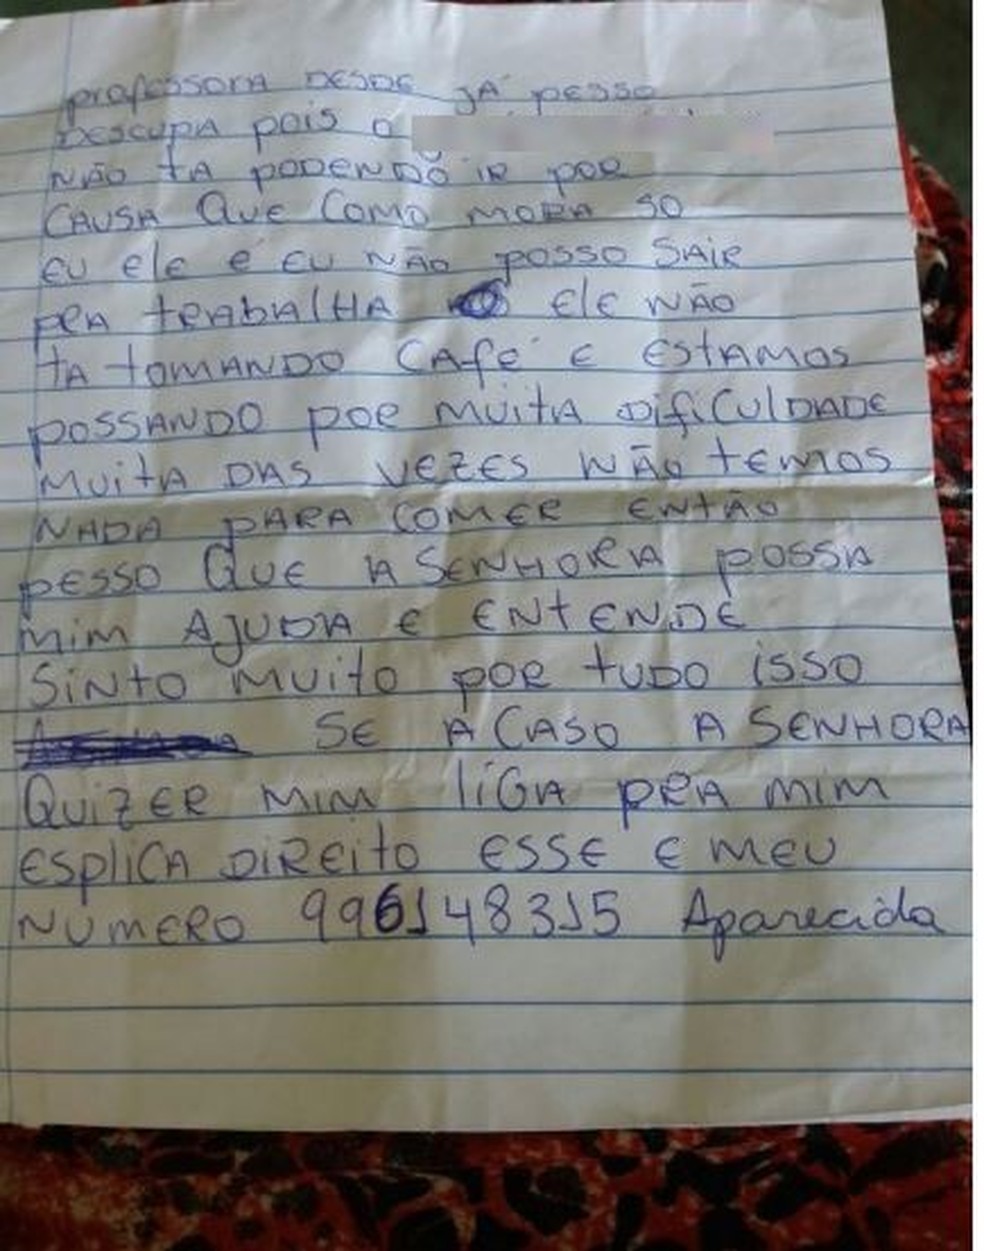 professora DESDE JÁ PESSO
DESCUPA pois o
NÃO TA PODENDO iR POR
CAUSA QUE COMO MORA SO
EU ElE E EU NÃO POSSO SAiR
PRA tRABAlHA ElE NÃO
TA tOMANDO CAfé E EStAMOS
POSSANDO POR MUitA DifiCUlDADE
MUitA DAS VEZES NÃO tEMOS
NADA PARA COMER ENtÃO
PESSO QUE A SENHORA POSSA
MiM AJUDA E ENtENDE
SiNtO MUitO POR tUDO iSSO
SE ACASO A SENHORA
QUiZER MiM liGA PRA MiM
ESpliCA DiREitO ESSE E MEU
NUMERO 996148315 Aparecida